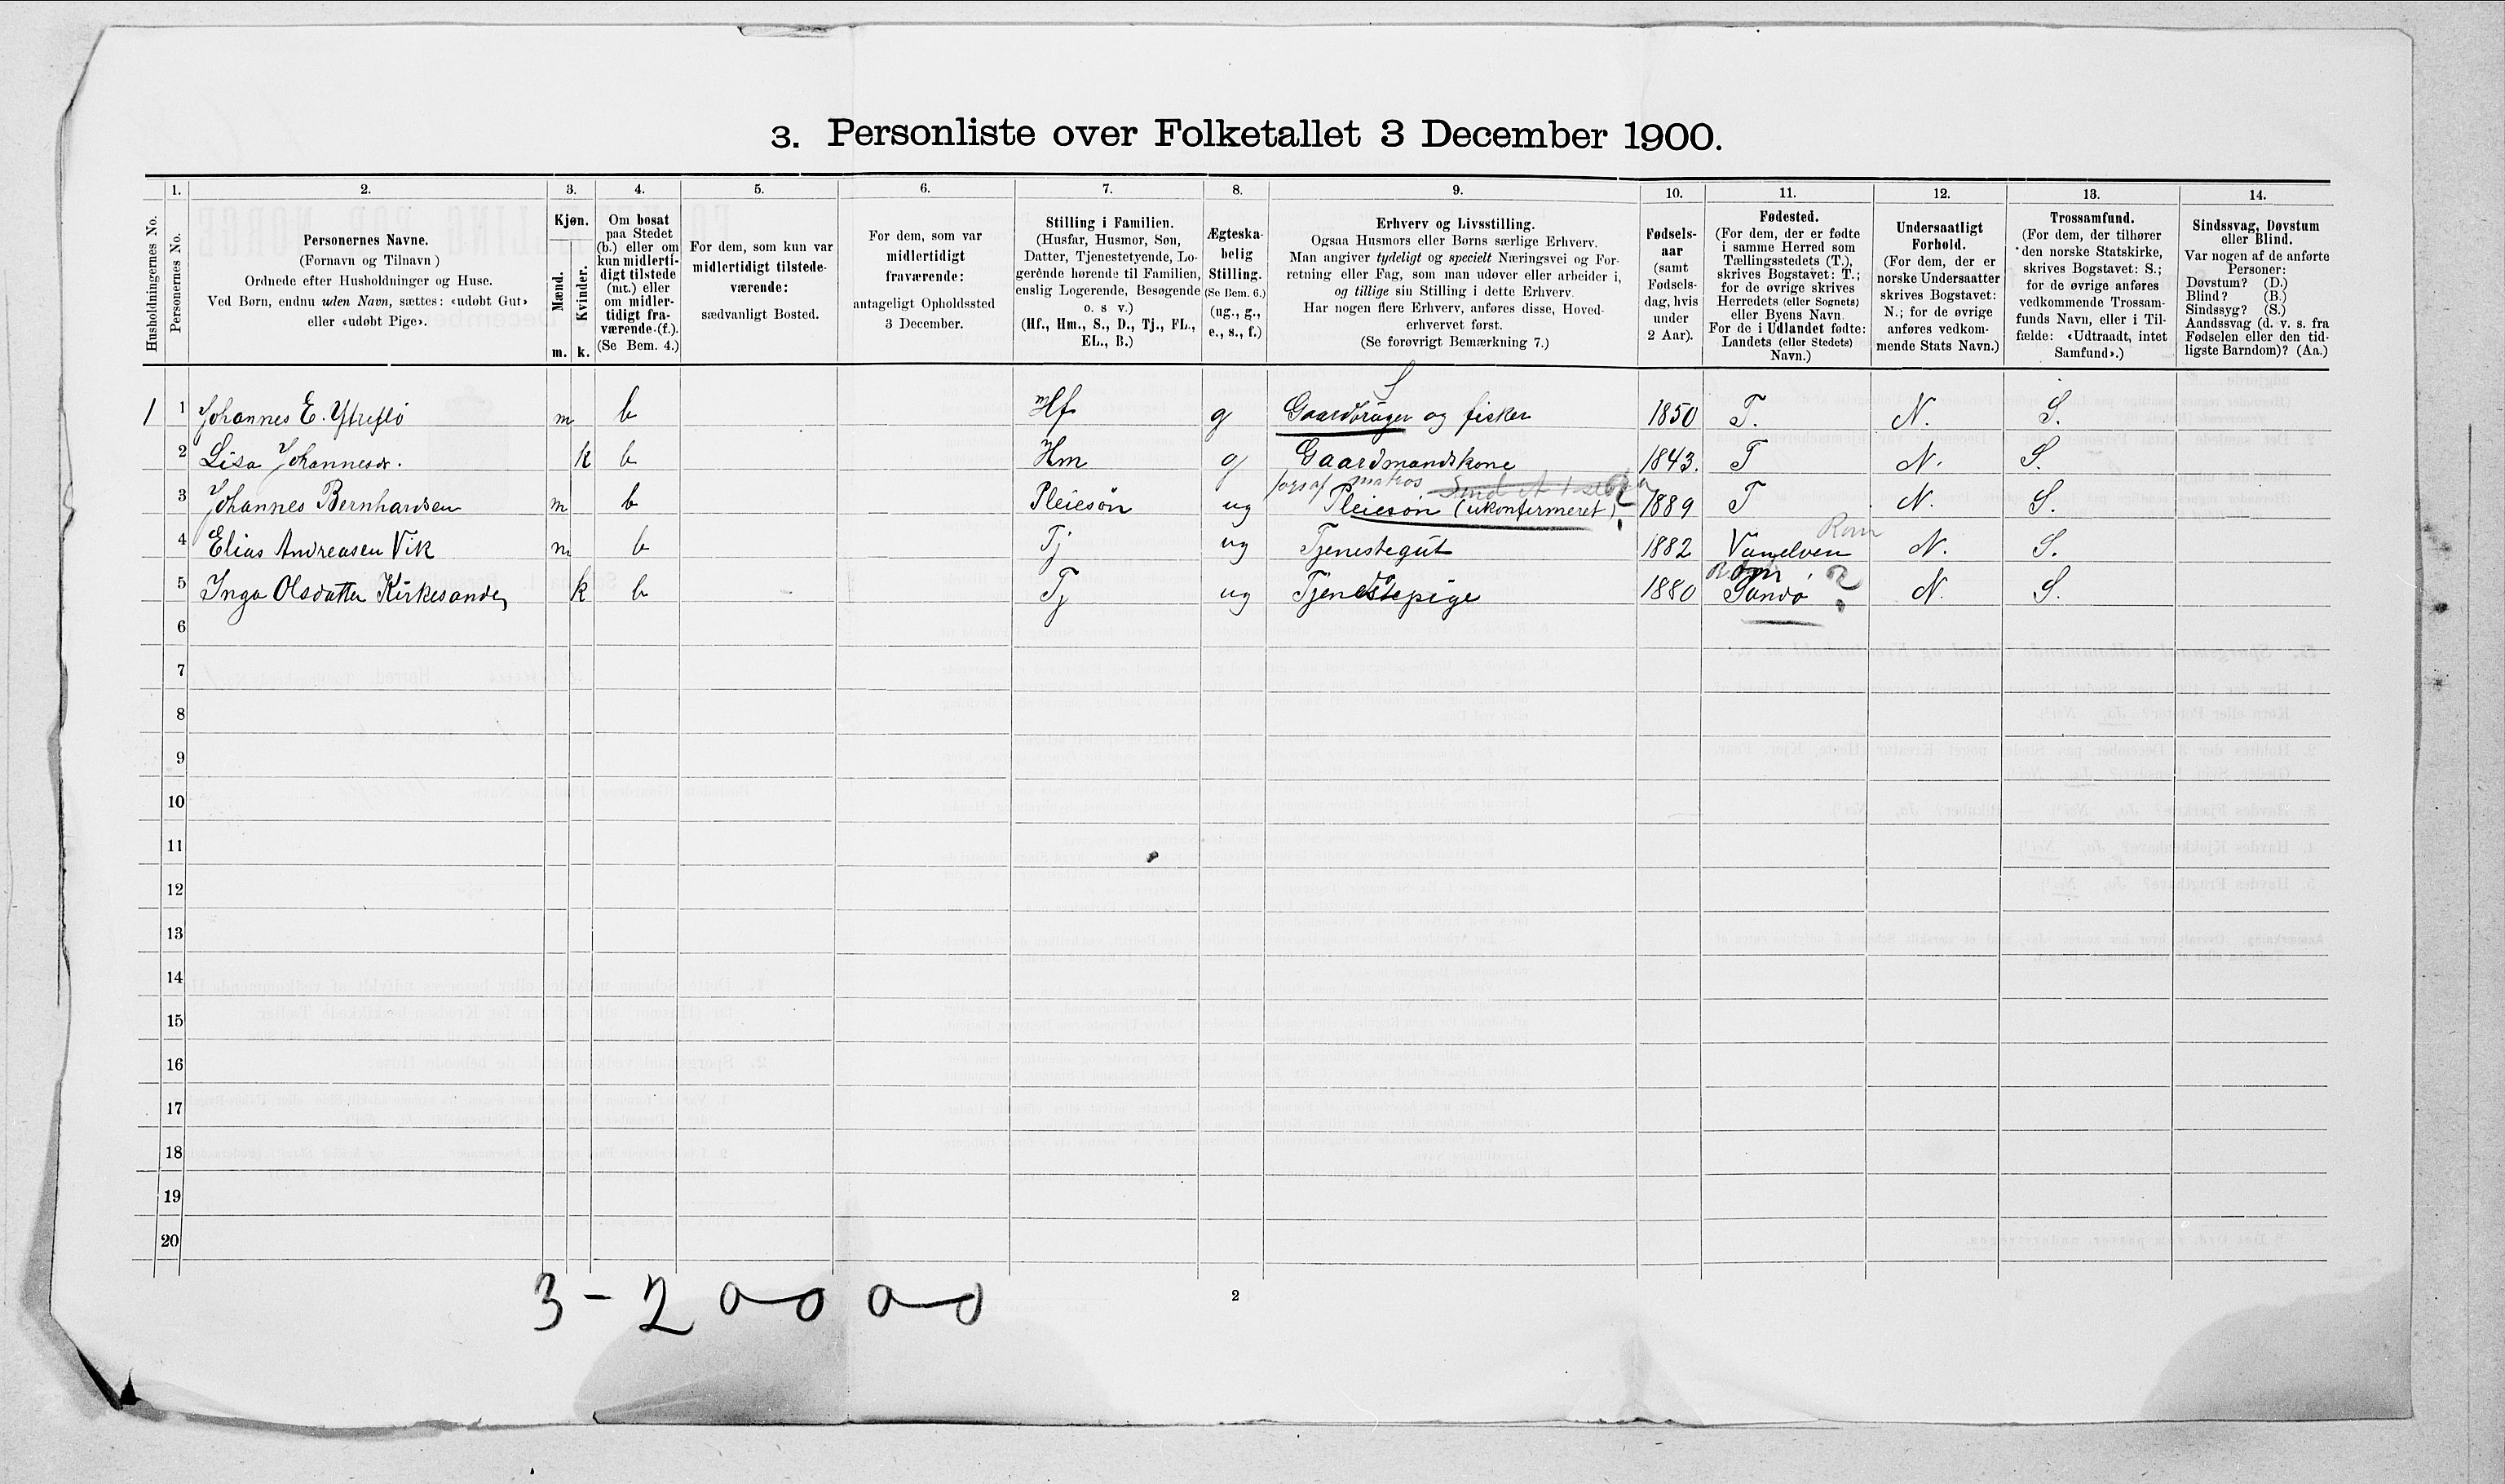 3. Personliste over Folketallet 3 December 1900.
1. 2. 3. 4. 5. 6. 7. 8. 9. 10. 11. 12. 13. 14.
Husholdningernes No.
Personernes No.
Personernes Navne.
(Fornavn og Tilnavn)
Ordnede efter Husholdninger og Huse.
Ved Børn, endnu uden Navn, sættes: «udøbt Gut»
eller «udøbt Pige».
Kjøn.
Mænd.
Kvinder.
m. k.
Om bosat
paa Stedet
(b.) eller om
kun midlerti-
digt tilstede
(mt.) eller
om midler-
tidigt fra-
værende (f.).
(Se Bem. 4.)
For dem, som kun var
midlertidigt tilstede-
værende:
sædvanligt Bosted.
For dem, som var
midlertidigt
fraværende:
antageligt Opholdssted
3 December.
Stilling i Familien.
(Husfar, Husmor, Søn,
Datter, Tjenestetyende, Lo-
gerende hørende til Familien,
enslig Logerende, Besøgende
o. s v.)
(Hf., Hm., S., D., Tj., FL.,
EL., B.)
Ægteska-
belig
Stilling.
(Se Bem. 6.)
(ug., g.,
e., s., f.)
Erhverv og Livsstilling.
Ogsaa Husmors eller Børns særlige Erhverv.
Man angiver tydeligt og specielt Næringsvei og For-
retning eller Fag, som man udøver eller arbeider i,
og tillige sin Stilling i dette Erhverv.
Har nogen flere Erhverv, anføres disse, Hoved-
erhvervet først.
(Se forøvrigt Bemærkning 7.)
Fødsels-
aar
(samt
Fødsels-
dag, hvis
under
2 Aar).
Fødested.
(For dem, der er fødte
i samme Herred som
Tællingsstedets (T.),
skrives Bogstavet: T.;
for de øvrige skrives
Herredets (eller Sognets)
eller Byens Navn.
For de i Udlandet fødte:
Landets (eller Stedets)
Navn.)
Undersaatligt
Forhold.
(For dem, der er
norske Undersaatter
skrives Bogstavet:
N.; for de øvrige
anføres vedkom-
mende Stats Navn.)
Trossamfund.
(For dem, der tilhører
den norske Statskirke,
skrives Bogstavet: S.;
for de øvrige anføres
vedkommende Trossam-
funds Navn, eller i Til-
fælde: «Udtraadt, intet
Samfund».)
Sindssvag, Døvstum
eller Blind.
Var nogen af de anførte
Personer:
Døvstum? (D.)
Blind? (B.)
Sindssyg? (S.)
Aandssvag (d. v. s. fra
Fødselen eller den tid-
ligste Barndom)? (Aa.)
S
1 1 Johannes E. Ytreflö m b Hf g Gaardbruger og fisker 1850 T. N. S.
2 Lisa Johannesdr. k b Hm g Gaardmandskone 1843. T N. S.
matros
3 Johannes Bernhardsen m b Pleiesön ug Pleiesön (ukonfirmeret) 1889 T N. S.
Rom
4 Elias Andreasen Vik m b Tj ug Tjenestegut 1882 Vanelven N. S.
5 Inga Olsdatter Kirkesande k b Tj ug Tjenestepige 1880 Sandö ? N. S.
6
7
8
9
10
11
12
13
14
15
16
17
18
19
20
3 - 2 0 0 0 0
2